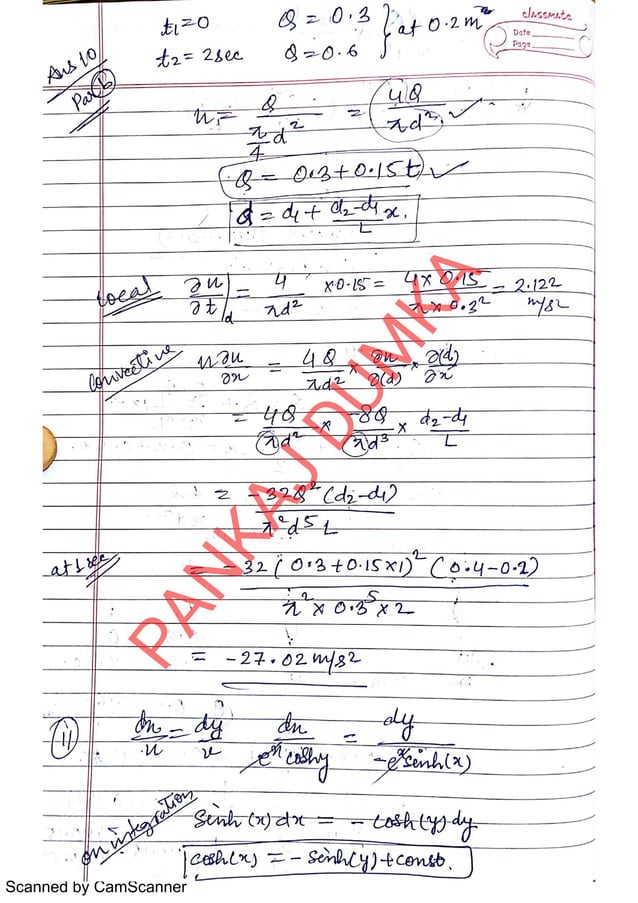 classmate
Date
Page
t₁=0 Q = 0.3 } at 0.2 m
t₂ = 2sec Q = 0.6
Ans 10
Part b
u = Q / (π/4 d²) = 4Q / πd² ✓
Q = 0.3 + 0.15 t ✓
d = d₁ + (d₂-d₁)/L x.
Local ∂u/∂t|d = 4/πd² × 0.15 = (4 × 0.15)/(π × 0.3²) = 2.122 m/s²
Convective u∂u/∂x = 4Q/πd² × ∂u/∂(d) × ∂(d)/∂x
= 4Q/πd² × -8Q/πd³ × (d₂-d₁)/L
= -32Q² (d₂-d₁) / π²d⁵ L
at 1 sec = -32 (0.3 + 0.15×1)² (0.4-0.2) / π² × 0.3⁵ × 2
= -27.02 m/s²
PANKAJ DUMKA
11 dx/u = dy/v dx/eˣcoshy = dy/-eˣsinh(x)
on integration sinh(x)dx = - cosh(y)dy
cosh(x) = - sinh(y) + const.
Scanned by CamScanner